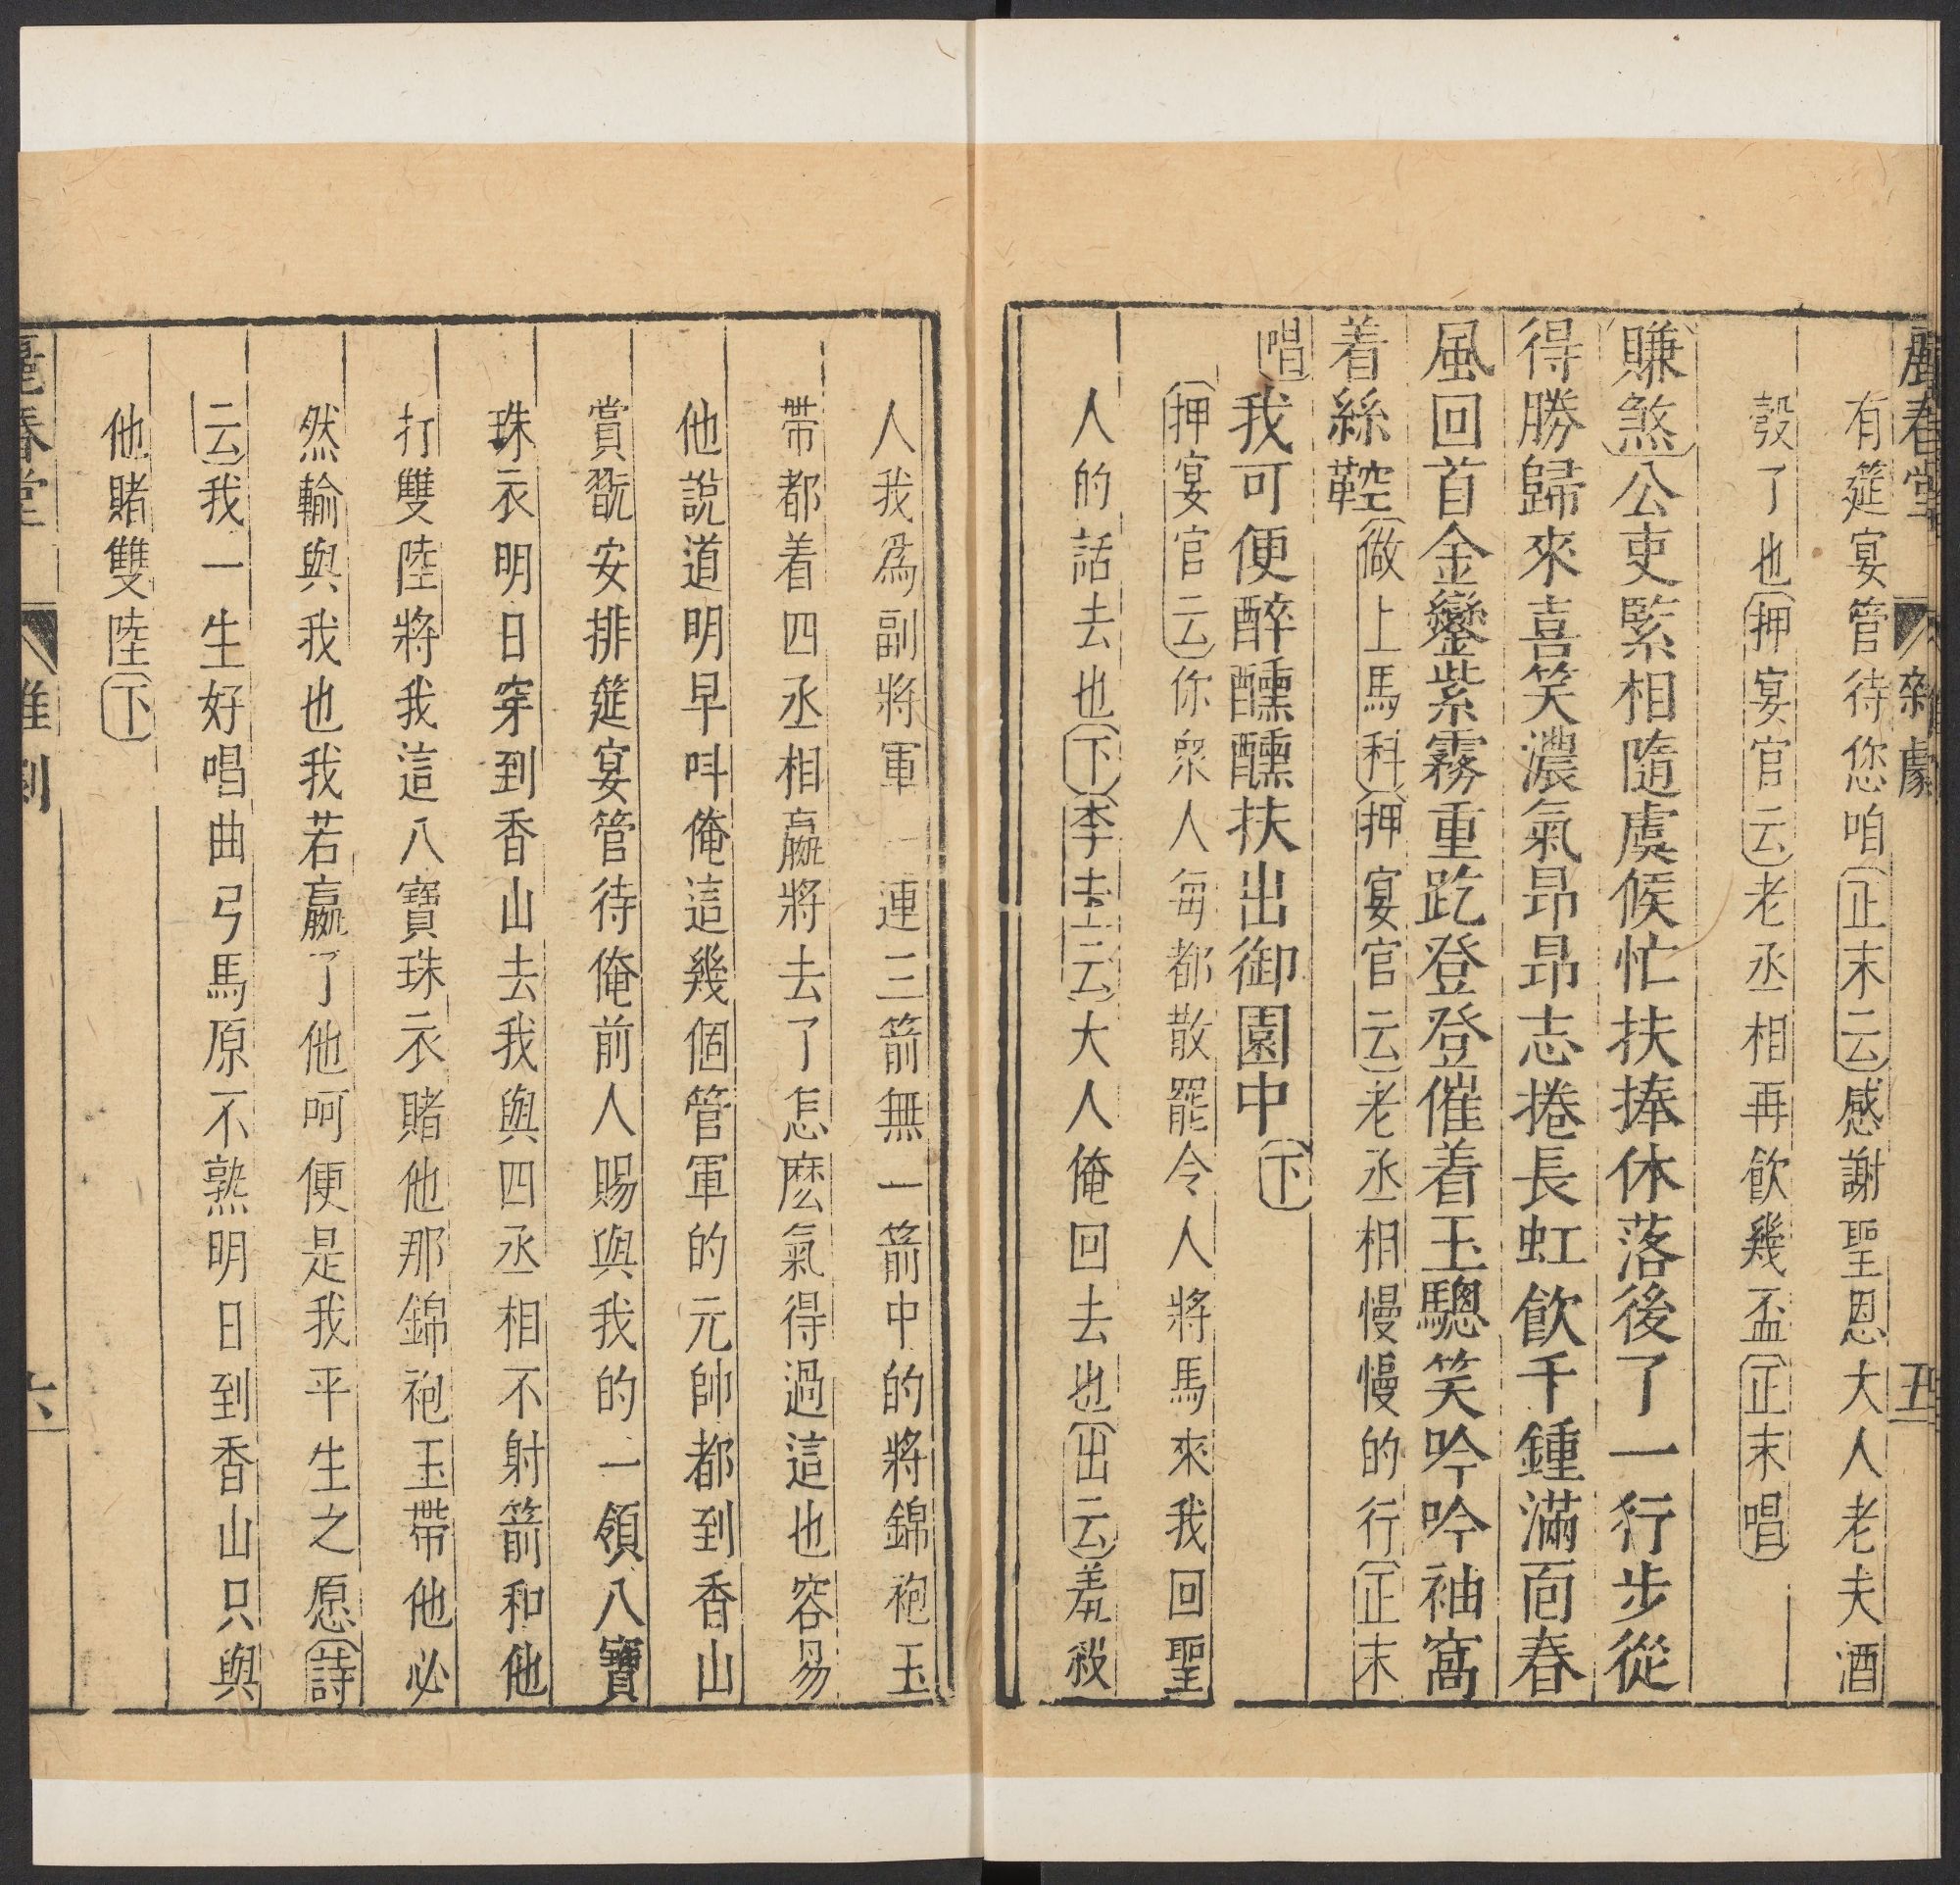 麗春堂 雜劇 五
有筵宴管待您咱正末云感謝聖恩大人老夫酒
彀了也押宴官云老丞相再飲幾盃正末唱
賺煞公吏緊相隨虞候忙扶捧休落後了一行步從
得勝歸來喜笑濃氣昂昂志捲長虹飲千鍾滿面春
風回首金鑾紫霧重趷登登催着玉驄笑吟吟袖窩
着絲鞚做上馬科押宴官云老丞相慢慢的行正末
唱我可便醉醺醺扶出御園中下
押宴官云你衆人每都散罷令人將馬來我回聖
人的話去也下李圭云大人俺回去也出云羞殺
人我爲副將軍一連三箭無一箭中的將錦袍玉
帶都着四丞相嬴將去了怎麽氣得過這也容易
他說道明早呌俺這幾個管軍的元帥都到香山
賞翫安排筵宴管待俺前人賜與我的一領八寶
珠衣明日穿到香山去我與四丞相不射箭和他
打雙陸將我這八寶珠衣賭他那錦袍玉帶他必
然輸與我也我若嬴了他呵便是我平生之愿詩
云我一生好唱曲弓馬原不熟明日到香山只與
他賭雙陸下
麗春堂 雜劇 六